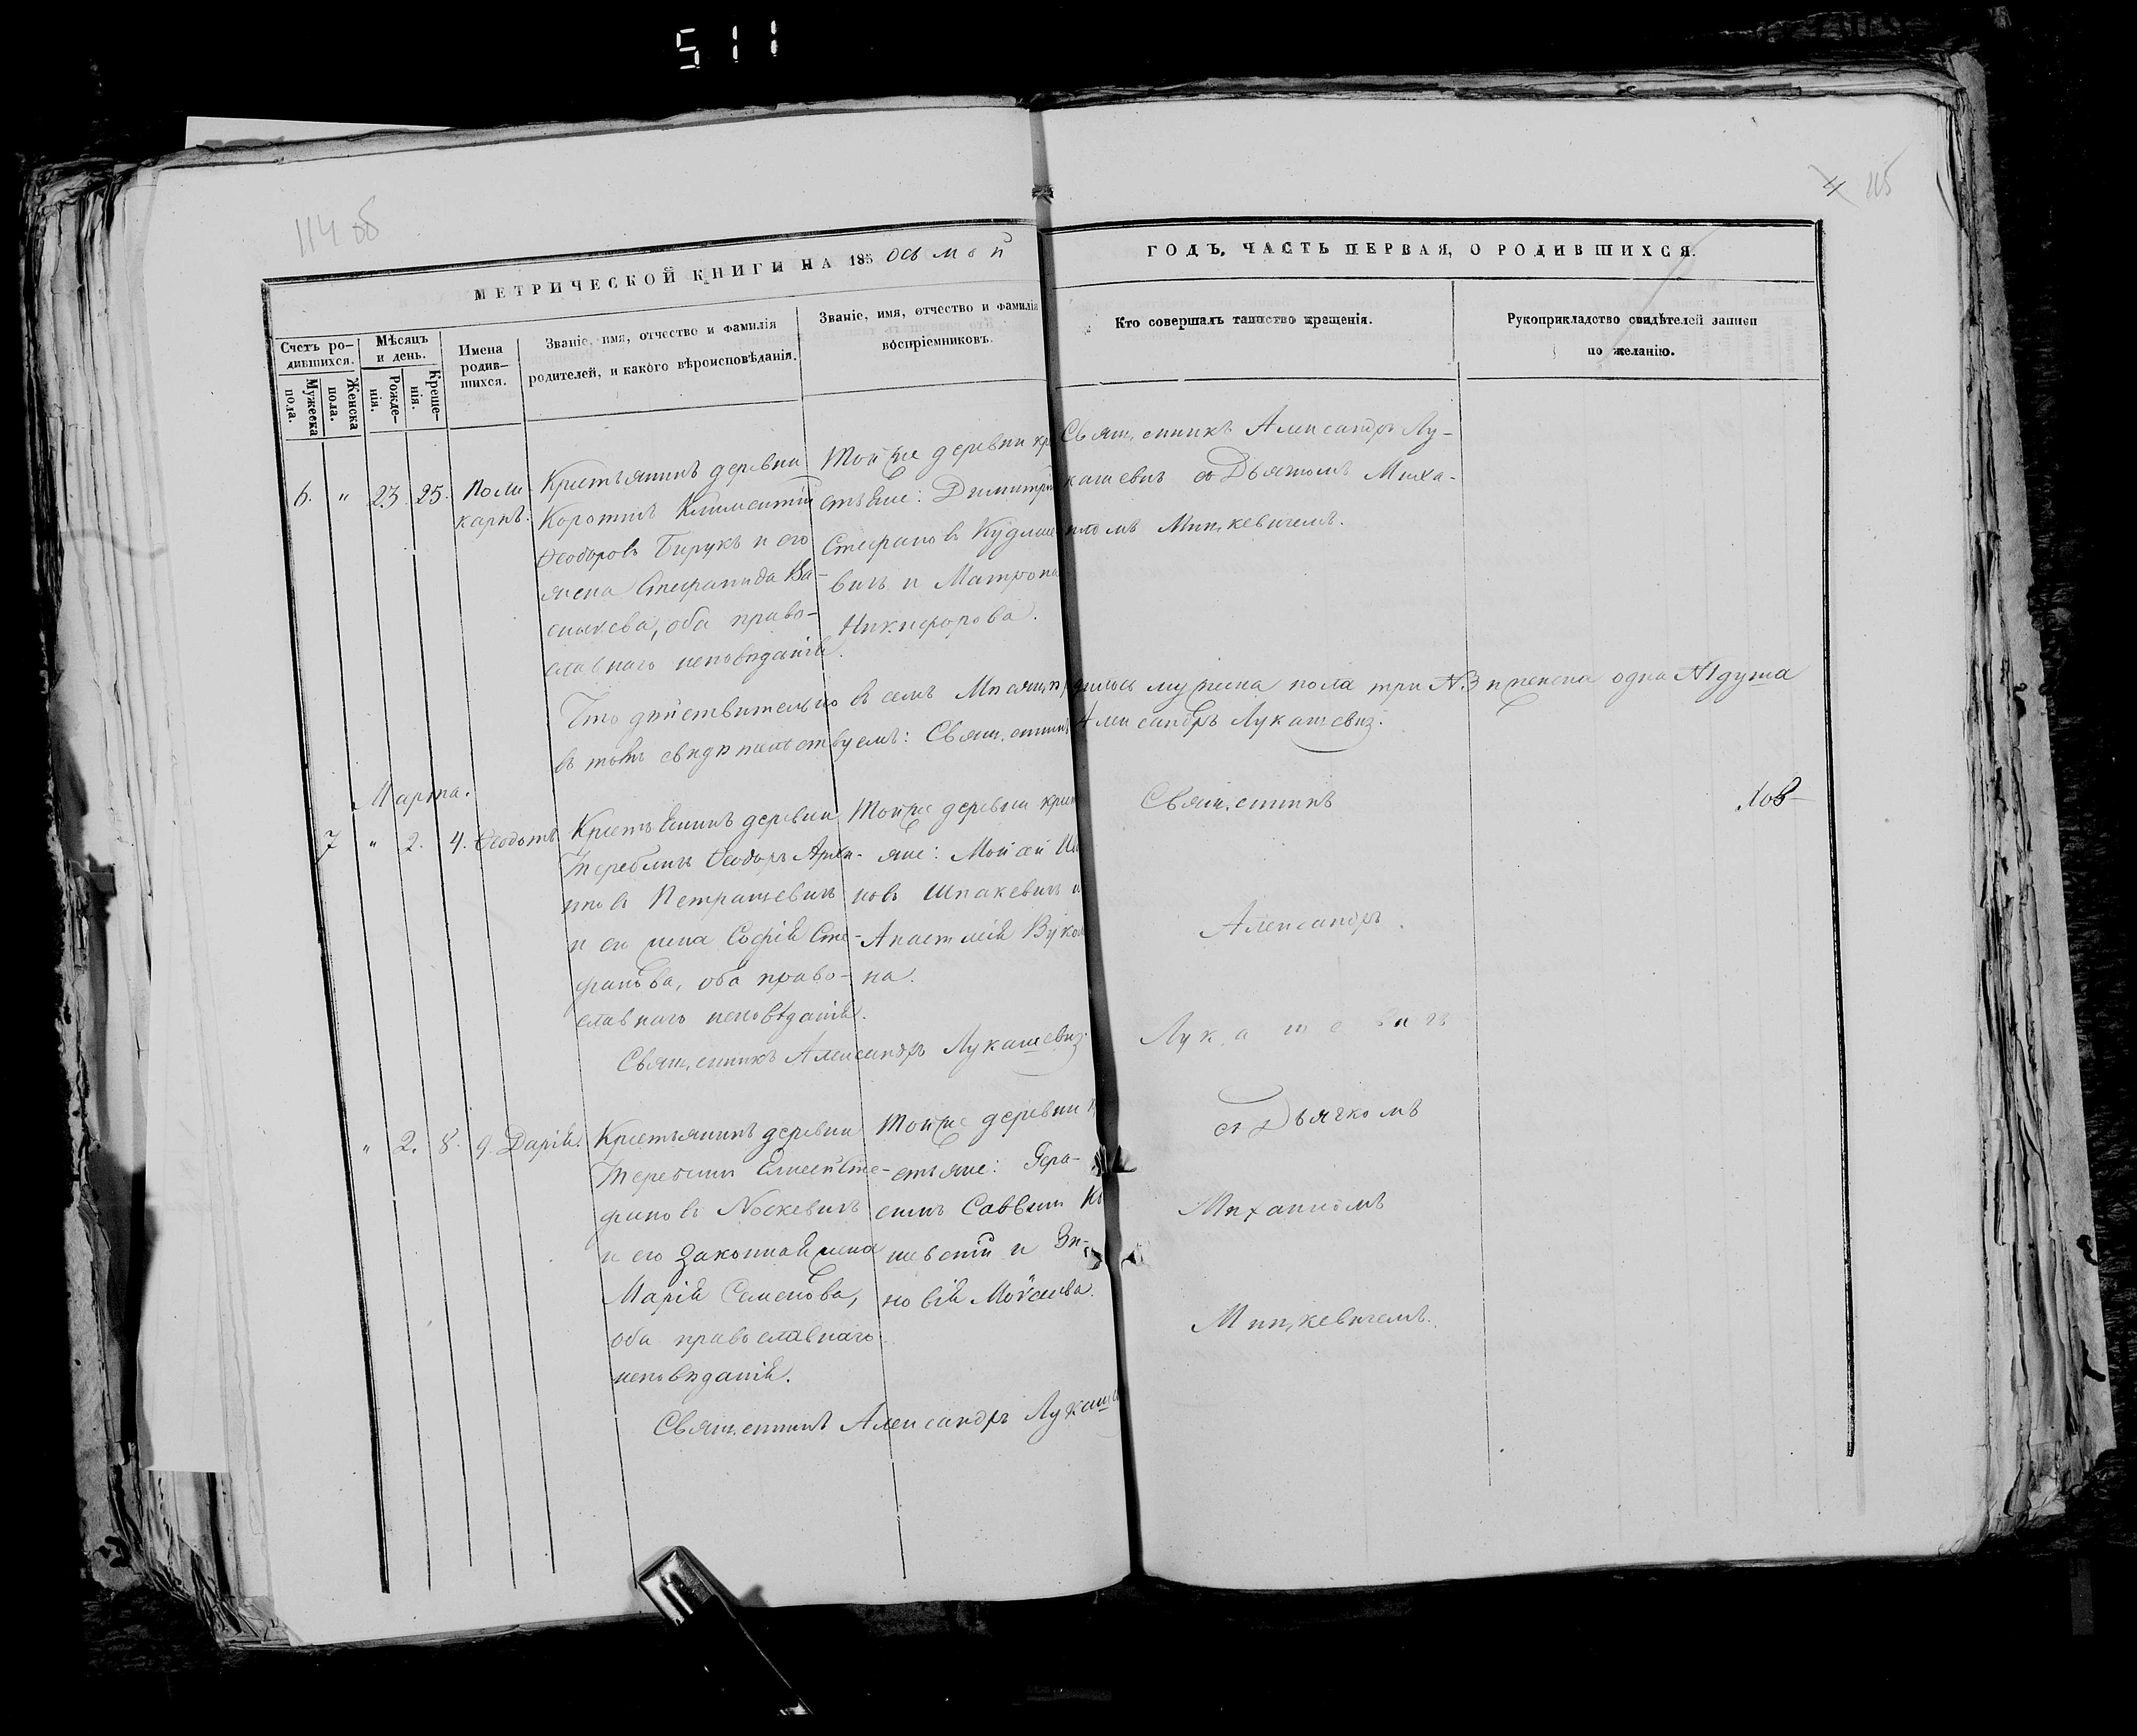 511
114 об
4 115
МЕТРИЧЕСКОЙ КНИГИ НА 185 осьмой ГОДЪ, ЧАСТЬ ПЕРВАЯ, О РОДИВШИХСЯ.
Счетъ ро-
дившихся.
Мужеска
пола.
Женска
пола.
Мѣсяцъ
и день.
Рожде-
нія.
Креще-
нія.
Имена
родив-
шихся.
Званіе, имя, отчество и фамилія
родителей, и какого вѣроисповѣданія.
Званіе, имя, отчество и фамилія
воспріемниковъ.
Кто совершалъ таинство крещенія.
Рукоприкладство свидѣтелей записи
по желанію.
6. " 23. 25.
Поли
карпъ.
Крестьянинъ деревни
Климентій
Ѳеодоровъ Бирукъ и его
жена Стефанида Ва-
сильева, оба право-
славнаго исповѣданія.
Той же деревни кр
стьяне: Димитрій
Стефановъ
вичъ и Матрона
Никифорова.
Священникъ Александръ Лу-
кашевичъ съ Дьячкомъ Миха-
иломъ Минкевичемъ.
Что дѣйствительно въ семъ Мѣсяцѣ родилось мужеска пола три №3 и женска одна №1 душа
въ томъ свидѣтельствуемъ: Священникъ Александръ Лукашевич.
Марта.
7 " 2. 4. Ѳеодотъ
Крестьянинъ деревни
Ѳеодоръ
Петрашевичъ
и его жена Софія Сте-
фанова, оба право-
славнаго исповѣданія.
Той же деревни крест
яне:
новъ Шпакевичъ и
Анастасія
на.
Священникъ Александръ Лукашевич.
" 2. 8. 9. Дарія.
Крестьянинъ деревни
Елисей Сте-
фановъ Носкевичъ
и его законная жена
Марія Семенова,
оба православнаго
исповѣданія.
Той же деревни к
стьяне: Гера-
симъ Саввинъ
и Зи-
новія Моѵсеева.
Священникъ Александръ Лукаш
Священникъ
Александръ
Лукашевичъ
съ Дьячкомъ
Михаиломъ
Минкевичемъ.